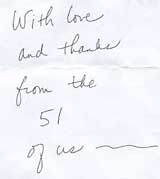 With love
and thanks
from the
51
of us